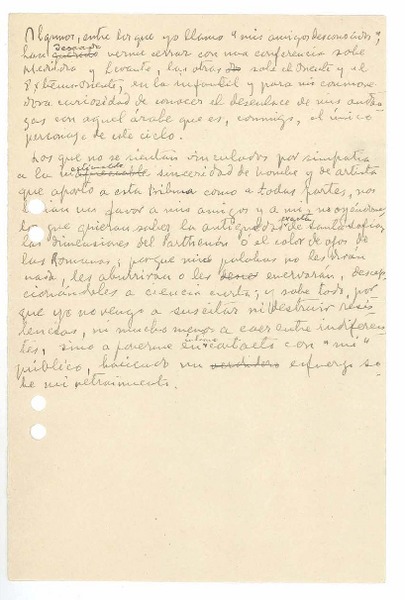 Algunos, entre los que yo llamo "mis amigos desconocidos",
han deseado querido verme cerrar con una conferencia sobre
Mediodía y Levante, las otras dos sobre el Oriente y el
Extremo Oriente, en la infantil y para mi conmove-
dora curiosidad de conocer el desenlace de mis andan-
zas con aquel árabe que es, conmigo, el único
personaje de este ciclo.
Los que no se sientan vinculados por simpatía
a la sinceridad de hombre y de artista
que aporto a esta tribuna como a todas partes, nos
harían un favor a mis amigos y a mi, no oyéndonos,
lo que quieran saber la antigüedad exacta de Santa Sofía,
las dimensiones del Parthenón ó el color de ojos de
las Romanas, porque mis palabras no les dirán
nada, les aburrirán o les enervarán, descep-
cionándoles a ciencia cierta; y sobre todo, por
que yo no vengo a suscitar ni destruir resis-
tencias, ni mucho menos a caer entre indiferen-
tes, sino a ponerme en íntimo contacto con "mi"
público, haciendo un verdadero esfuerzo so-
bre mi retraimiento.